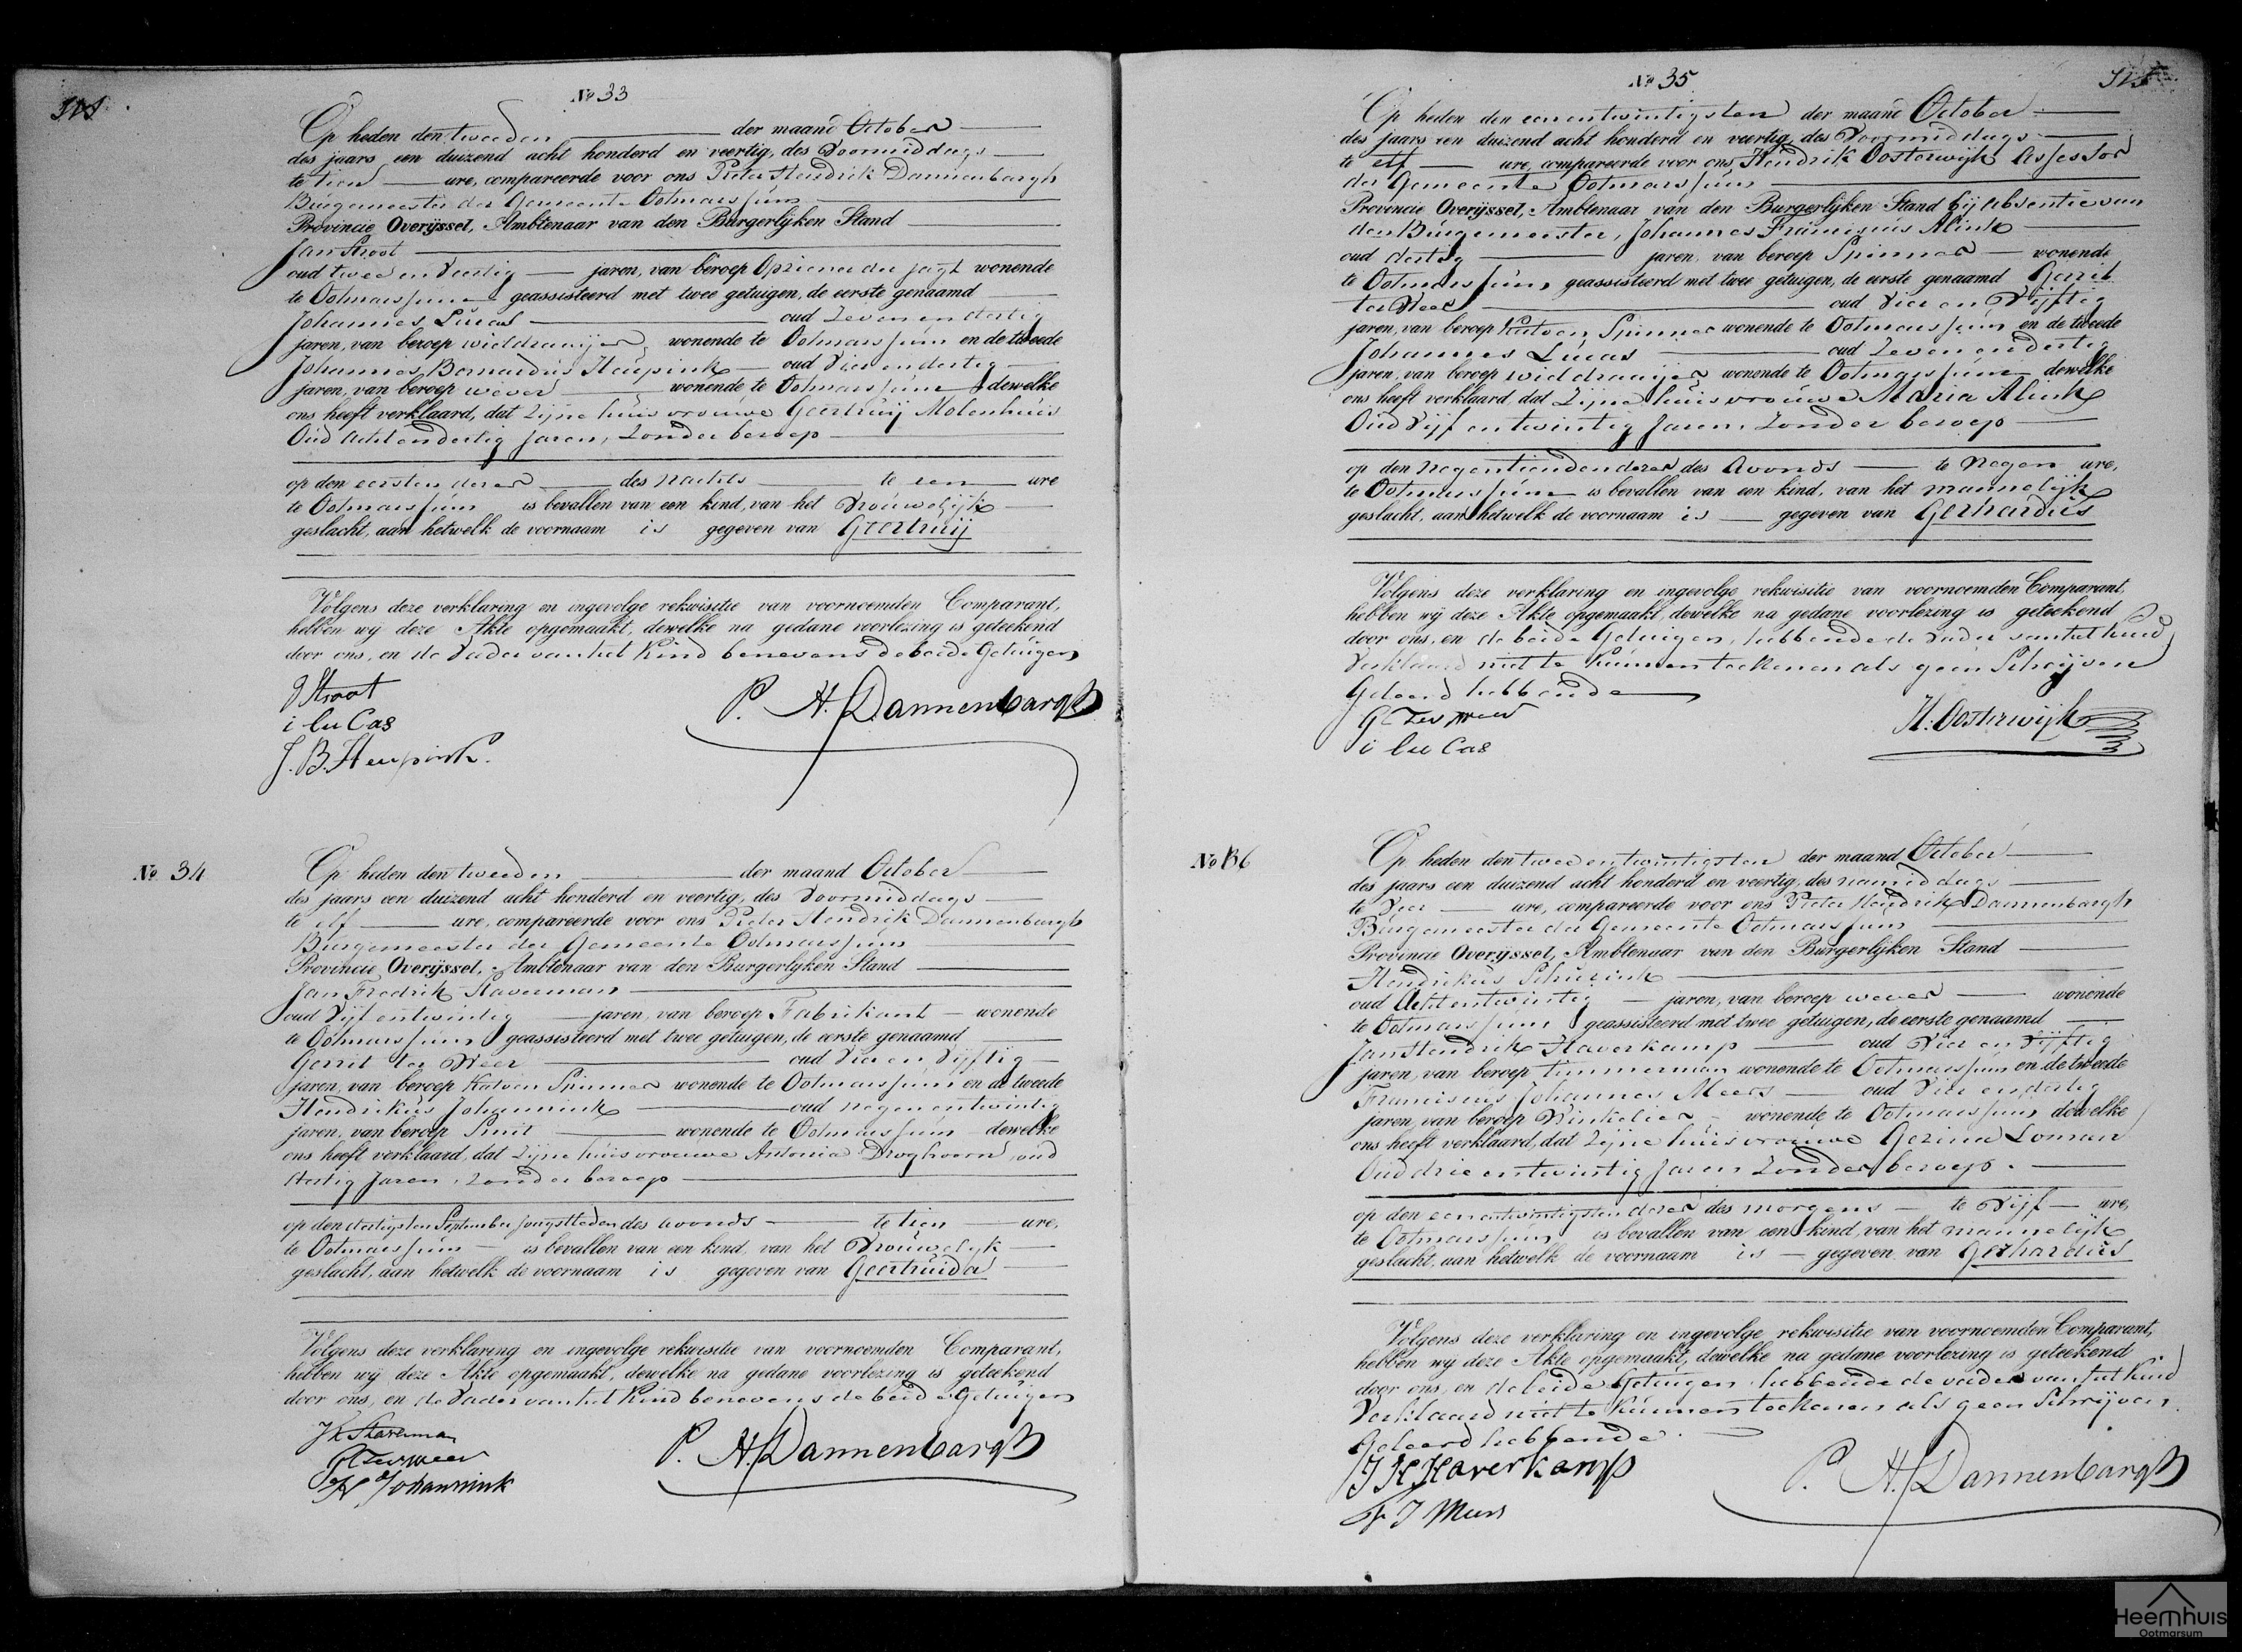 № 33
Op heden den tweeden der maand October
des jaars een duizend acht honderd en veertig, des Voormiddags
te tien ure, compareerde voor ons Pieter Hendrik Dannenbargh
Burgemeester der Gemeente Ootmarssum
Provincie Overijssel, Ambtenaar van den Burgerlijken Stand
Jan Stroot
oud twee en Veertig jaren, van beroep Opziener der jagt wonende
te Ootmarssum geassisteerd met twee getuigen, de eerste genaamd
Johannes Lucas oud Zeven en dertig
jaren, van beroep wieldraaijer wonende te Ootmarssum en de tweede
Johannes Bernardus Heupink oud Vier en dertig
jaren, van beroep wever wonende te Ootmarssum dewelke
ons heeft verklaard, dat Zijne huisvrouwe Geertruij Molenhuis
Oud Acht en dertig Jaren, Zonder beroep
op den eersten dezer des Nachts te een ure
te Ootmarssum is bevallen van een kind, van het Vrouwelijk
geslacht, aan hetwelk de voornaam is gegeven van Geertruij
Volgens deze verklaring en ingevolge rekwisitie van voornoemden Comparant,
hebben wij deze Akte opgemaakt, dewelke na gedane voorlezing is geteekend
door ons, en de Vader van het Kind benevens de beide Getuigen
J Stroot
i lu Cas
J. B. Heupink.
P. H. Dannenbargh
№ 34
Op heden den tweeden der maand October
des jaars een duizend acht honderd en veertig, des Voormiddags
te elf ure, compareerde voor ons Pieter Hendrik Dannenbargh
Burgemeester der Gemeente Ootmarssum
Provincie Overijssel, Ambtenaar van den Burgerlijken Stand
Jan Fredrik Staverman
oud Vijf en twintig jaren, van beroep Fabrikant wonende
te Ootmarssum geassisteerd met twee getuigen, de eerste genaamd
Gerrit ter Weer oud Vier en Vijftig
jaren, van beroep Katoen Spinner wonende te Ootmarssum en de tweede
Hendrikus Johannink oud negen en twintig
jaren, van beroep Smit wonende te Ootmarssum dewelke
ons heeft verklaard, dat Zijne huisvrouwe Antonia Droghoorn, oud
dertig Jaren, Zonder beroep
op den dertigsten September jongstleden des avonds te tien ure,
te Ootmarssum is bevallen van een kind, van het Vrouwelijk
geslacht, aan hetwelk de voornaam is gegeven van Geertruida
Volgens deze verklaring en ingevolge rekwisitie van voornoemden Comparant,
hebben wij deze Akte opgemaakt, dewelke na gedane voorlezing is geteekend
door ons, en de Vader van het Kind benevens de beide Getuigen
G Ter Weer
H Johannink
P. H. Dannenbargh
№ 35
Op heden den een en twintigsten der maand October
des jaars een duizend acht honderd en veertig, des Voormiddags
te elf ure, compareerde voor ons Hendrik Oosterwijk Assessor
der Gemeente Ootmarssum
Provincie Overijssel, Ambtenaar van den Burgerlijken Stand bij absentie van
den Burgemeester, Johannes Franciscus Alink
oud dertig jaren, van beroep Spinner wonende
te Ootmarssum geassisteerd met twee getuigen, de eerste genaamd Gerrit
ter Weer oud Vier en Vijftig
jaren, van beroep Katoen Spinner wonende te Ootmarssum en de tweede
Johannes Lucas oud Zeven en dertig
jaren, van beroep wieldraaijer wonende te Ootmarssum dewelke
ons heeft verklaard, dat Zijne huisvrouwe Maria Alink
Oud Vijf en twintig Jaren, Zonder beroep
op den Negentienden dezer des Avonds te Negen ure,
te Ootmarssum is bevallen van een kind, van het mannelijk
geslacht, aan hetwelk de voornaam is gegeven van Gerhardus
Volgens deze verklaring en ingevolge rekwisitie van voornoemden Comparant,
hebben wij deze Akte opgemaakt, dewelke na gedane voorlezing is geteekend
door ons, en de beide Getuigen, hebbende de Vader van het kind
Verklaard niet te kunnen teekenen als geen Schrijven
Geleerd hebbende
G Ter Weer
i lu Cas
H. Oosterwijk
№ 36
Op heden den twee en twintigsten der maand October
des jaars een duizend acht honderd en veertig, des namiddags
te Vier ure, compareerde voor ons Pieter Hendrik Dannenbargh
Burgemeester der Gemeente Ootmarssum
Provincie Overijssel, Ambtenaar van den Burgerlijken Stand
Hendrikus Schurink
oud Acht en twintig jaren, van beroep wever wonende
te Ootmarssum geassisteerd met twee getuigen, de eerste genaamd
Jan Hendrik Haverkamp oud Vier en Vijftig
jaren, van beroep timmerman wonende te Ootmarssum en de tweede
Franciscus Johannes Meers oud Vier en dertig
jaren, van beroep Winkelier wonende te Ootmarssum dewelke
ons heeft verklaard, dat Zijne huisvrouwe Gezina Loman
Oud drie en twintig Jaren Zonder beroep.
op den een en twintigsten dezer des morgens te Vijf ure,
te Ootmarssum is bevallen van een kind, van het mannelijk
geslacht, aan hetwelk de voornaam is gegeven van Gerhardus
Volgens deze verklaring en ingevolge rekwisitie van voornoemden Comparant,
hebben wij deze Akte opgemaakt, dewelke na gedane voorlezing is geteekend
door ons, en de beide Getuigen hebbende de vader van het Kind
Verklaard niet te kunnen teekenen als geen Schrijven
Geleerd hebbende.
J H Haverkamp
F J Meers
P. H. Dannenbargh
Heemhuis
Ootmarsum